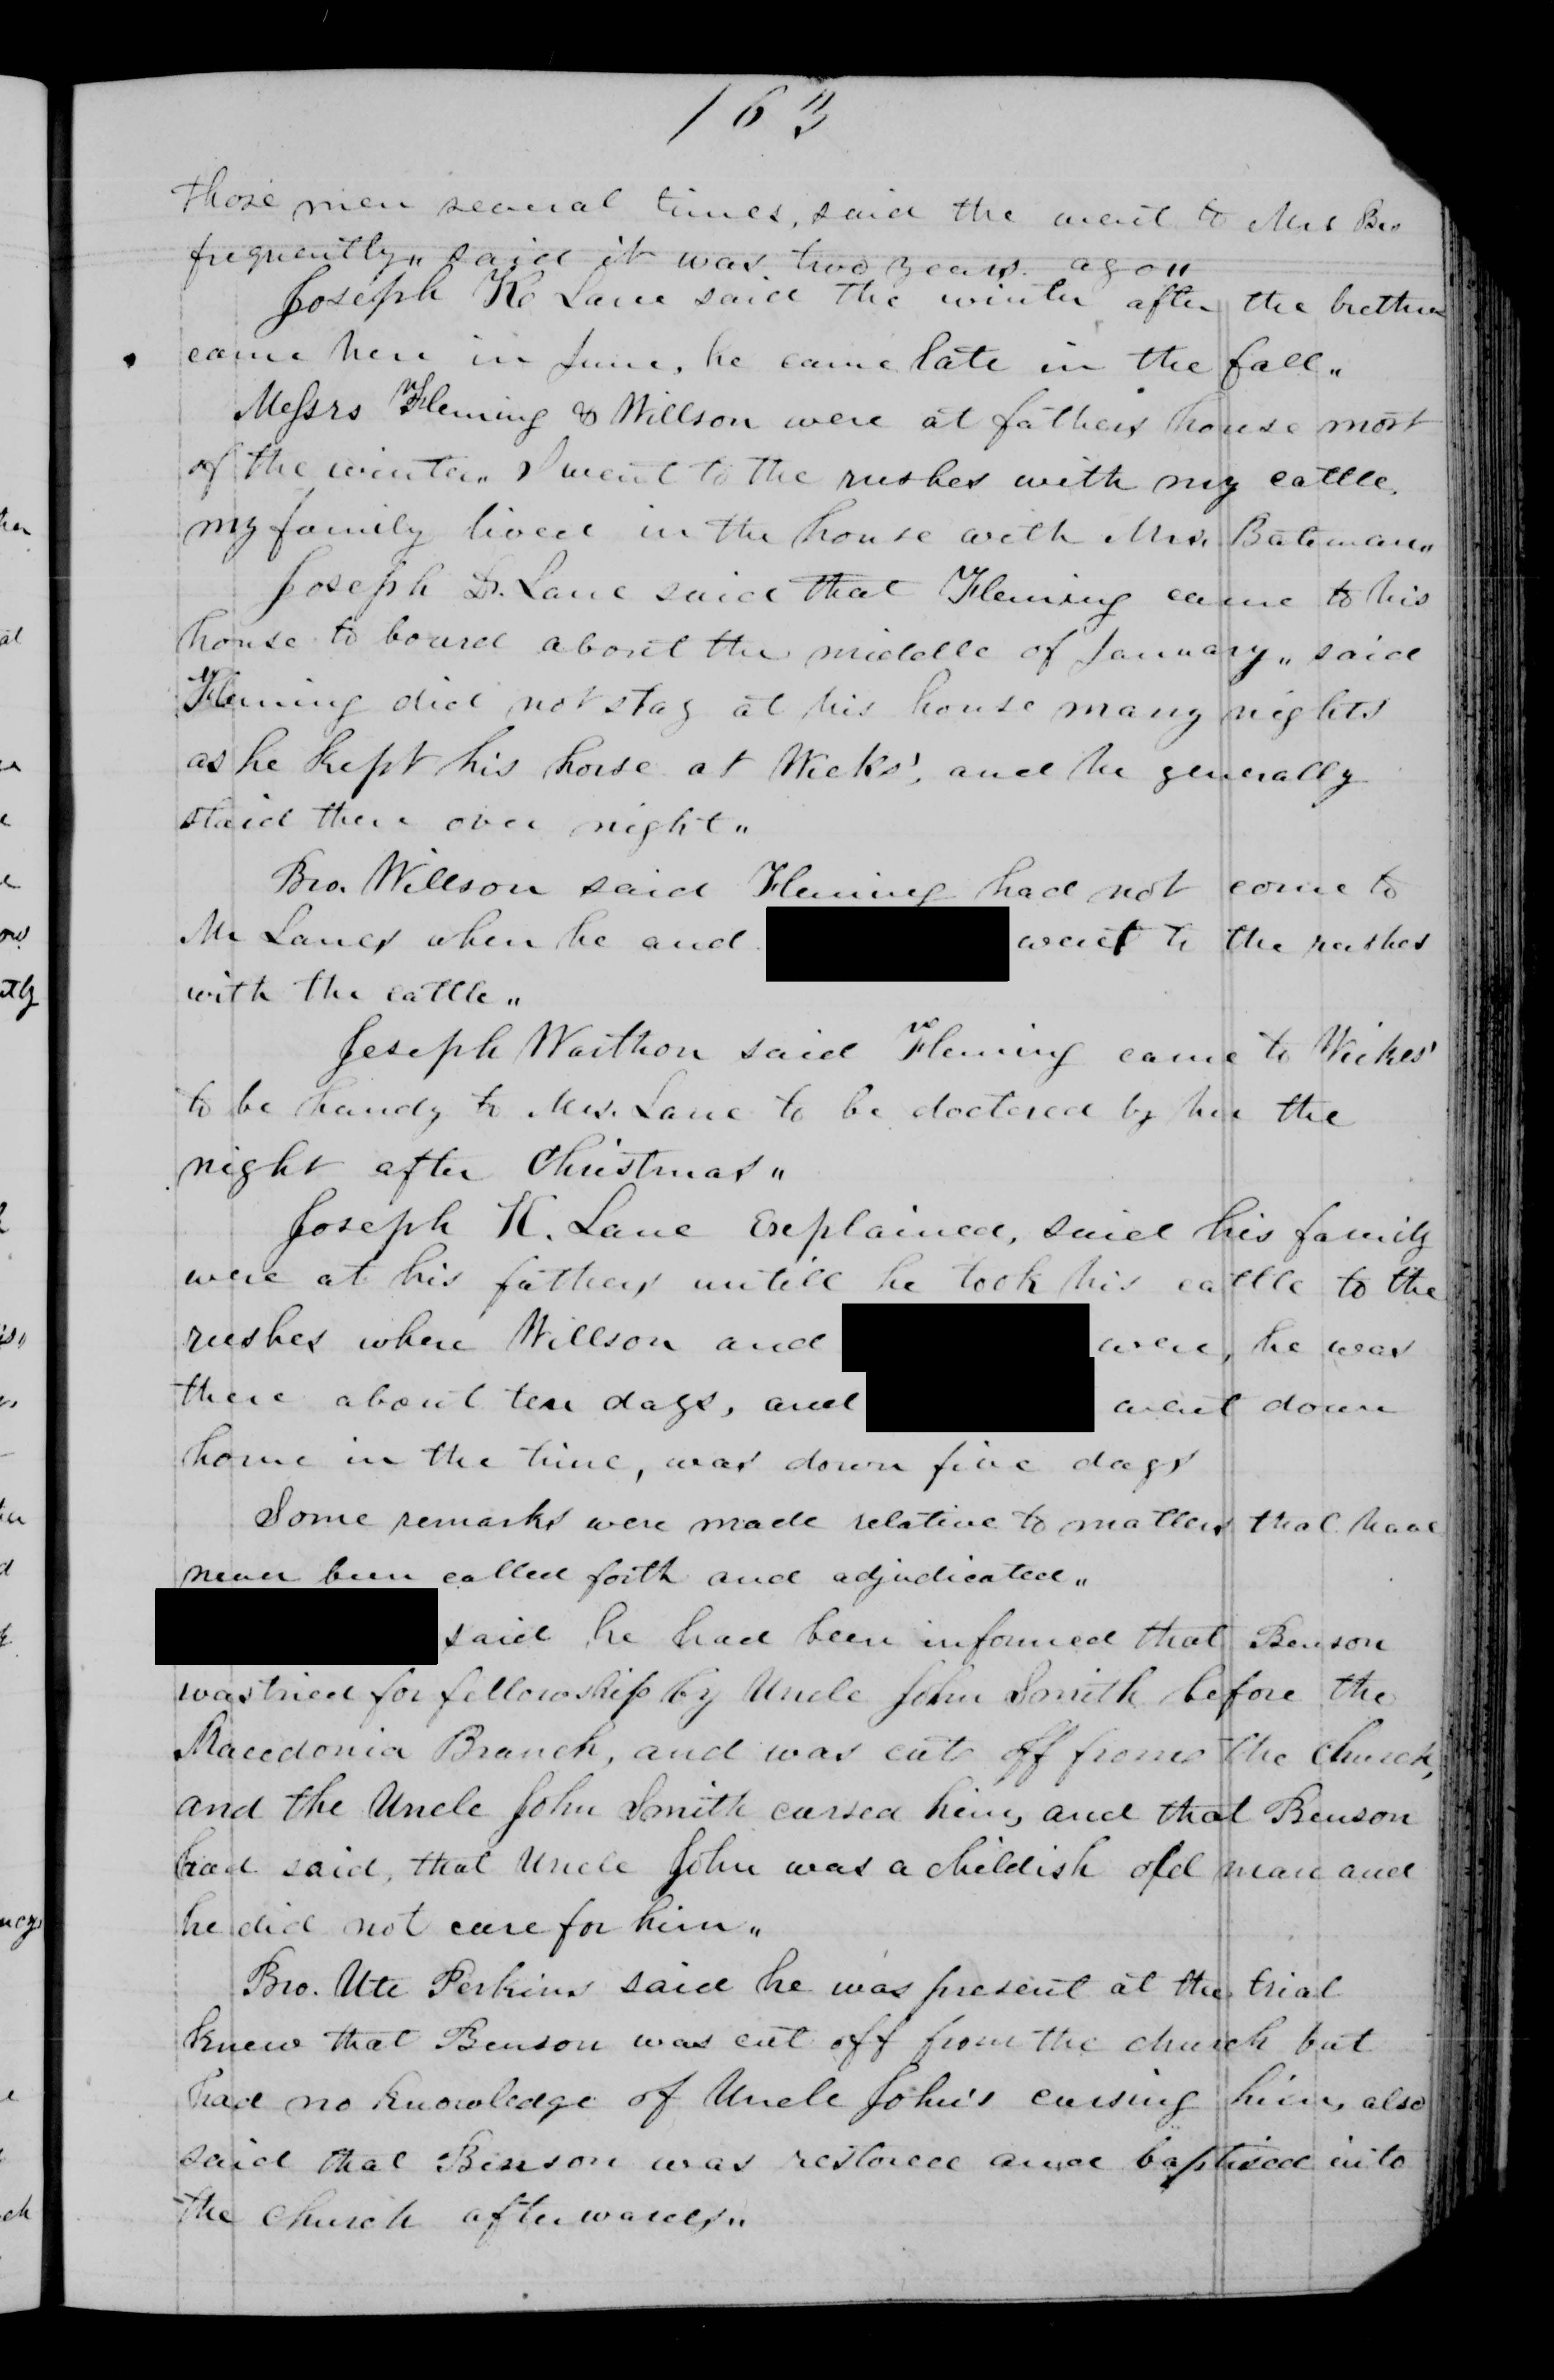 163
those men several times, said the went to Mrs Bro
frequently" said it was two years ago"
Joseph K Lane said the winter after the brethren
came here in June, he came late in the fall"
Messrs Fleming & Willson were at fathers house most
of the winter" I went to the rushes with my cattle,
my family lived in the house with Mrs. Bateman"
Joseph Lane said that Fleming came to his
house to board about the middle of January" said
Fleming did not stay at his house many nights
as he kept his horse at Wicks', and he generally
staid there over night"
Bro. Willson said Fleming had not come to
Mr Lanes when he and went to the rushes
with the cattle"
Joseph said Fleming came to Wickes'
to be handy to Mrs. Lane to be doctered by her the
night after Christmas"
Joseph K. Lane Explained, said his family
were at his fathers untill he took his cattle to the
rushes where Willson and were, he was
there about ten days, and went down
home in the time, was down five days
Some remarks were made relative to matters that have
never been called forth and adjudicated"
said he had been informed that Benson
was tried for fellowship by Uncle John Smith before the
Macedonia Branch, and was cut off from the Church,
and the Uncle John Smith cursed him, and that Benson
had said, that Uncle John was a childish old man and
he did not care for him"
Bro. Ute Perkins said he was present at the trial
knew that Benson was cut off from the church but
had no knowledge of Uncle John's cursing him, also
said that Benson was restored and baptised into
the Church afterwards"